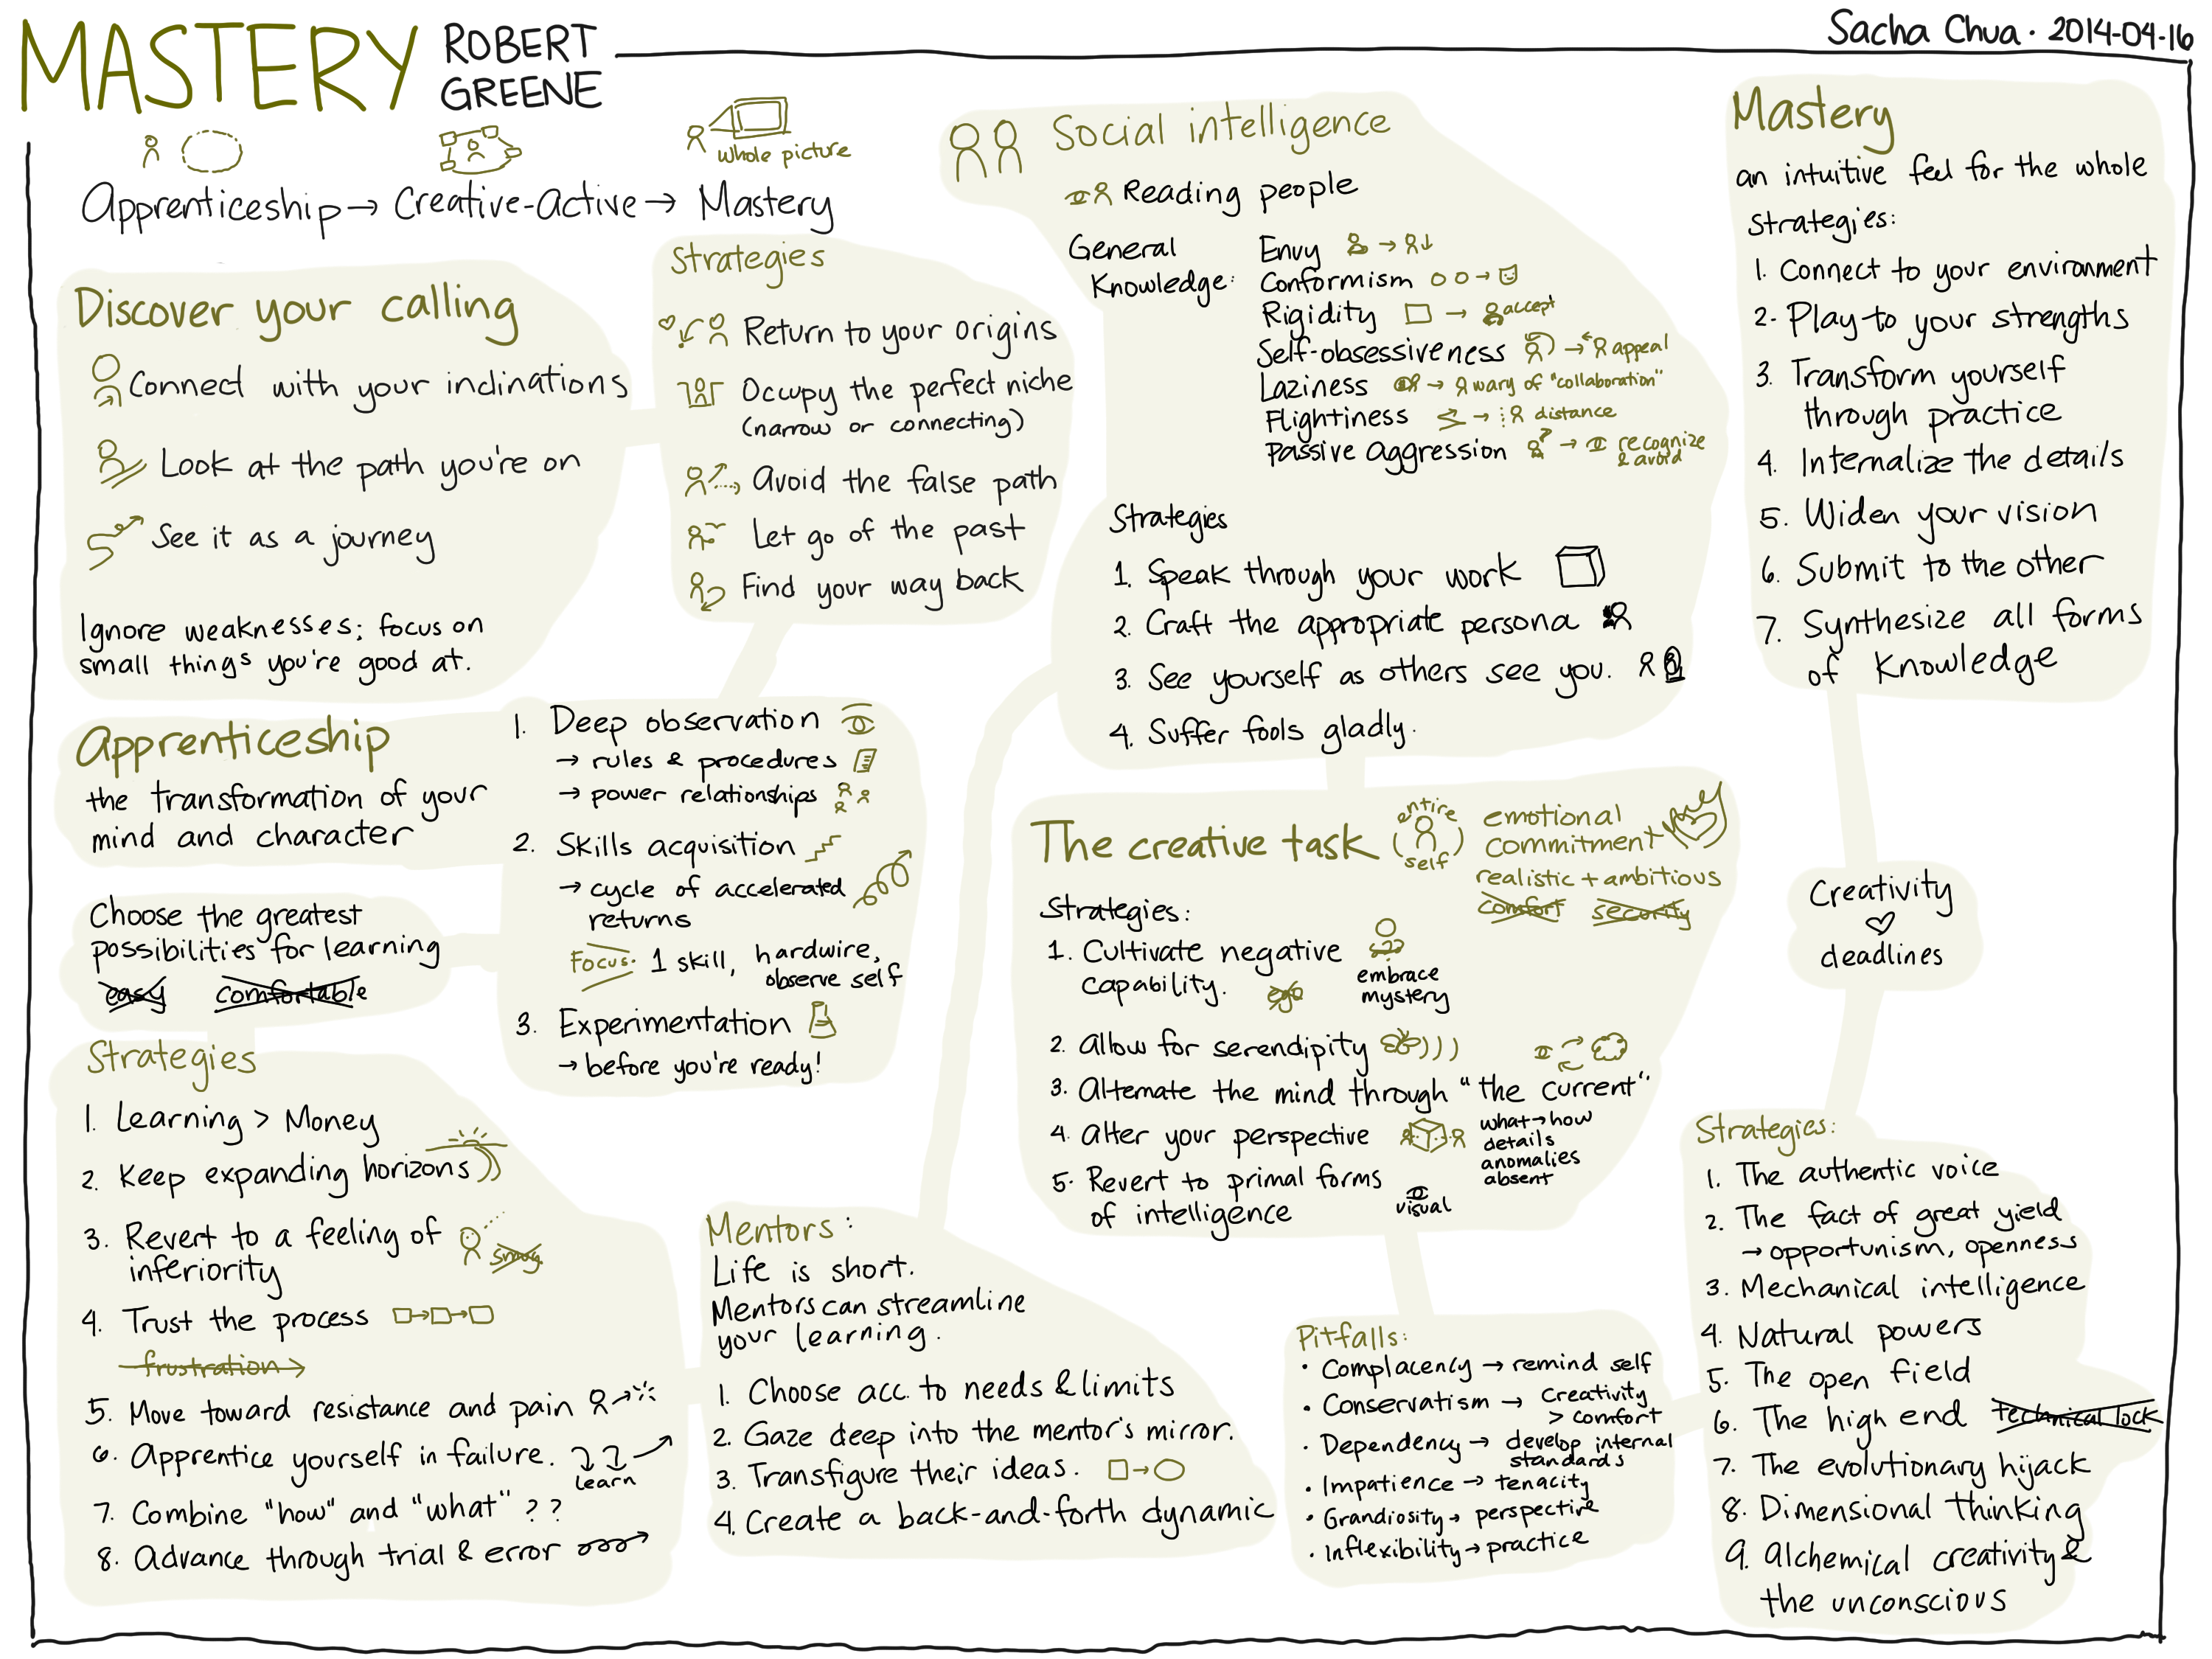 MASTERY
ROBERT
GREENE
Sacha Chua · 2014-04-16
whole picture
Apprenticeship → Creative-Active → Mastery
Discover your calling
Connect with your inclinations
Look at the path you're on
See it as a journey
Ignore weaknesses; focus on
small things you're good at.
Strategies
Return to your origins
Occupy the perfect niche
(narrow or connecting)
Avoid the false path
Let go of the past
Find your way back
Apprenticeship
the transformation of your
mind and character
Choose the greatest
possibilities for learning
easy comfortable
1. Deep observation
→ rules & procedures
→ power relationships
2. Skills acquisition
→ cycle of accelerated
returns
Focus: 1 skill, hardwire,
observe self
3. Experimentation
→ before you're ready!
Strategies
1. Learning > Money
2. Keep expanding horizons
3. Revert to a feeling of
inferiority
smug
4. Trust the process
frustration
5. Move toward resistance and pain
6. Apprentice yourself in failure.
learn
7. Combine "how" and "what" ??
8. Advance through trial & error
Mentors:
Life is short.
Mentors can streamline
your learning.
1. Choose acc. to needs & limits
2. Gaze deep into the mentor's mirror.
3. Transfigure their ideas.
4. Create a back-and-forth dynamic
Social intelligence
Reading people
General
Knowledge:
Envy
Conformism
Rigidity → accept
Self-obsessiveness → appeal
Laziness → wary of "collaboration"
Flightiness → distance
Passive Aggression → recognize
& avoid
Strategies
1. Speak through your work
2. Craft the appropriate persona
3. See yourself as others see you.
4. Suffer fools gladly.
The creative task
entire
self
emotional
commitment
realistic + ambitious
comfort security
Strategies:
1. Cultivate negative
capability.
ego
embrace
mystery
2. Allow for serendipity
3. Alternate the mind through "the current"
4. Alter your perspective
what → how
details
anomalies
absent
5. Revert to primal forms
of intelligence
visual
Pitfalls:
· Complacency → remind self
· Conservatism → creativity
> comfort
· Dependency → develop internal
standards
· Impatience → tenacity
· Grandiosity → perspective
· Inflexibility → practice
Mastery
an intuitive feel for the whole
Strategies:
1. Connect to your environment
2. Play to your strengths
3. Transform yourself
through practice
4. Internalize the details
5. Widen your vision
6. Submit to the other
7. Synthesize all forms
of knowledge
Creativity
♡
deadlines
Strategies:
1. The authentic voice
2. The fact of great yield
→ opportunism, openness
3. Mechanical intelligence
4. Natural powers
5. The open field
6. The high end technical lock
7. The evolutionary hijack
8. Dimensional thinking
9. Alchemical creativity &
the unconscious